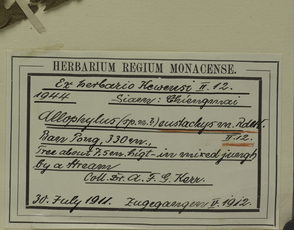 HERBARIUM REGIUM MONACENSE.
Ex herbario Kewensi II. 12.
1944 Siam: Chiengmai
Allophylus (sp. n.?) eustachys m. Radlk.
Baen Pong, 330 m., II. 12.
Tree about 7.5 m. higt - in mixed jungl
by a stream
Coll. Dr. A. F. G. Kerr.
30. July 1911. Zugegangen II 1912.